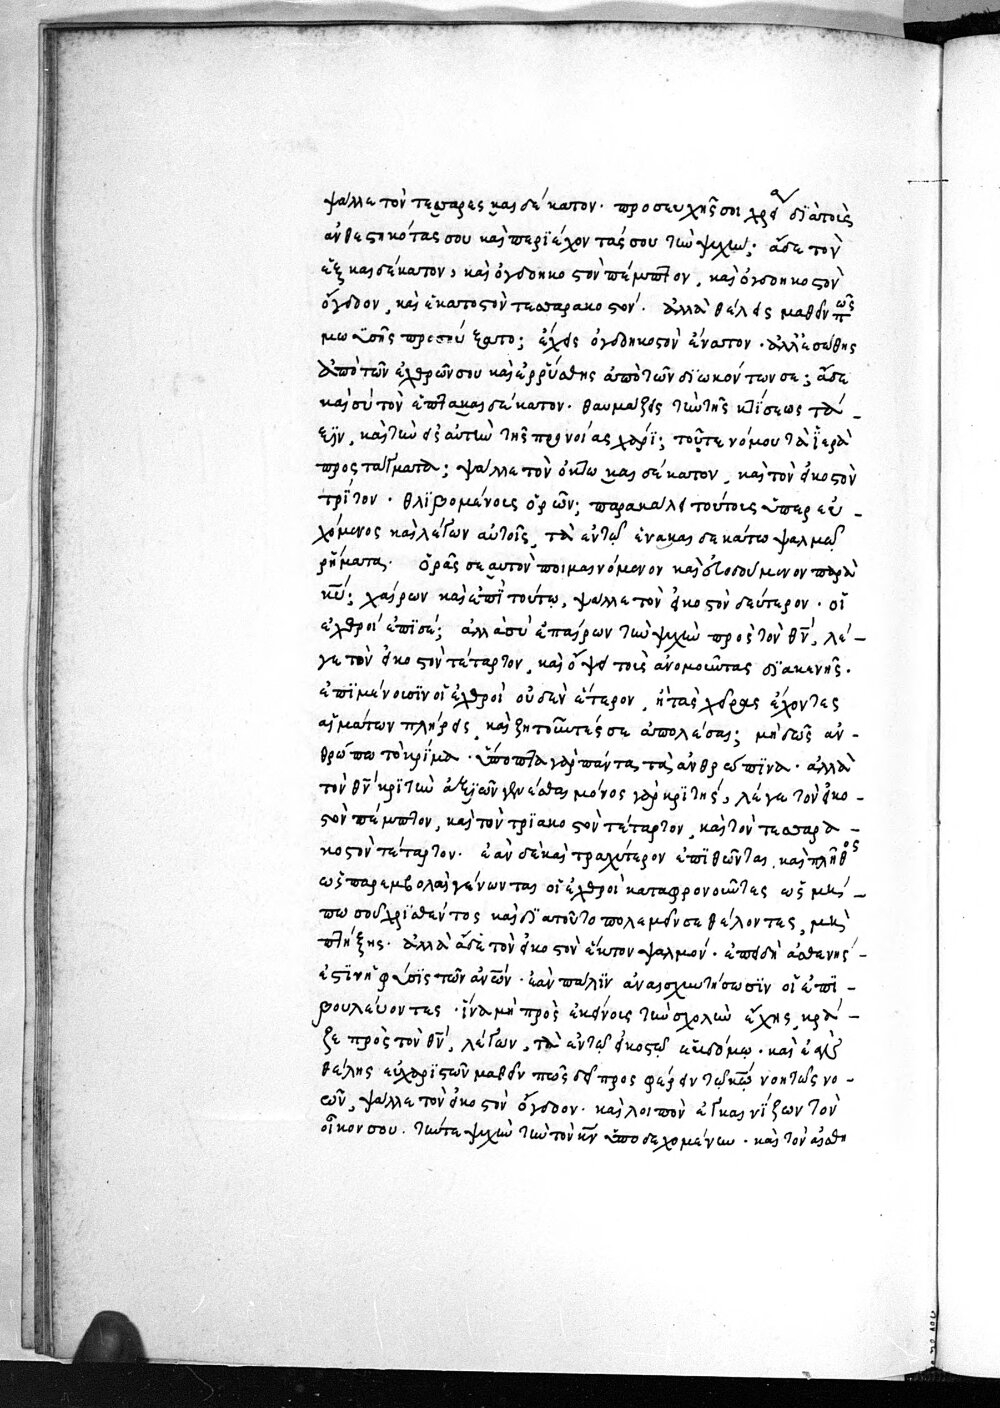 ψάλλε τὸν τεσσαρεσκαιδέκατον· προσευχῆς σοι χρεία διὰ τοὺς
ἀνθεστηκότας σου καὶ περιέχοντάς σου τὴν ψυχήν; ἆδε τὸν
ἑξκαιδέκατον, καὶ ὀγδοηκοστὸν πέμπτον, καὶ ὀγδοηκοστὸν
ὄγδοον, καὶ ἑκατοστὸν τεσσαρακοστόν· ἀλλὰ θέλεις μαθεῖν πῶς
μωϋσῆς προσηύξατο; ἔχεις ὀγδοηκοστὸν ἔνατον· ἀλλ' ἐσώθης
ἀπὸ τῶν ἐχθρῶν σου καὶ ἐρρύσθης ἀπὸ τῶν διωκόντων σε; ἆδε
καὶ σὺ τὸν ἑπτακαιδέκατον· θαυμάζεις τὴν τῆς κτίσεως τά-
ξιν, καὶ τὴν ἐξ αὐτὴν τῆς προνοίας χάριν; τοῦ τε νόμου τὰ ἱερὰ
προστάγματα; ψάλλε τὸν ὀκτωκαιδέκατον, καὶ τὸν εἰκοστὸν
τρίτον· θλιβομένους ὁρῶν; παρακάλει τούτους ὑπερευ-
χόμενος καὶ λέγων αὐτοῖς, τὰ ἐν τῷ ἐνακαιδεκάτω ψαλμῷ
ρήματα· ὁρᾶς σεαυτὸν ποιμαινόμενον καὶ ὁδοδούμενον παρὰ
κυ; χαίρων καὶ ἐπὶ τούτω, ψάλλε τὸν εἰκοστὸν δεύτερον· οἱ
ἐχθροὶ ἐπί σέ; ἀλλὰ σὺ ἐπαίρων τὴν ψυχὴν πρὸς τὸν θν, λέ-
γε τὸν εἰκοστὸν τέταρτον, καὶ ὄψει τοὺς ἀνομοῦντας διακενῆς·
ἐπιμένουσιν οἱ ἐχθροὶ οὐδὲν ἕτερον, ἢ τὰς χεῖρας ἔχοντες
αἱμάτων πλήρεις, καὶ ζητοῦντές σε ἀπολέσαι; μὴ δῶς ἀν-
θρώπω τὸ κρίμα· ὕποπτα γὰρ πάντα τὰ ἀνθρώπινα· ἀλλὰ
τὸν θν κριτὴν ἀξιῶν γενέσθαι μόνος γὰρ κριτής, λέγε τὸν εἰκο-
στὸν πέμπτον, καὶ τὸν τριακοστὸν τέταρτον, καὶ τὸν τεσσαρα-
κοστὸν τέταρτον· ἐὰν δὲ καὶ τραχύτερον ἐπιθῶνται, καὶ πλῆθος
ὡς παρεμβολαὶ γένωνται οἱ ἐχθροὶ καταφρονοῦντες ὡς μή-
πω σου χρισθέντος καὶ διὰ τοῦτο πολεμεῖν σε θέλοντες, μὴ
πτήξης· ἀλλὰ ἆδε τὸν εἰκοστὸν ἕκτον ψαλμόν· ἐπειδὴ ἀσθενής
ἐστιν ἡ φύσις τῶν ἀνων· ἐὰν πάλιν ἀναισχυντήσωσιν οἱ ἐπι-
βουλεύοντες· ἵνα μὴ πρὸς ἐκείνους τὴν σχολὴν ἔχης, κρά-
ζε πρὸς τὸν θν, λέγων, τὰ ἐν τῷ εἰκοστῷ ἑβδόμω· καὶ ἐὰν
θέλης εὐχαριστῶν μαθεῖν πῶς δεῖ προσφέρειν τῷ κω νοητῶς νο-
ῶν, ψάλλε τὸν εἰκοστὸν ὄγδοον· καὶ λοιπὸν ἐγκαινίζων τὸν
οἶκον σου· τήν τε ψυχὴν τὴν τὸν κν ὑποδεχομένην· καὶ τὸν αἰσθη